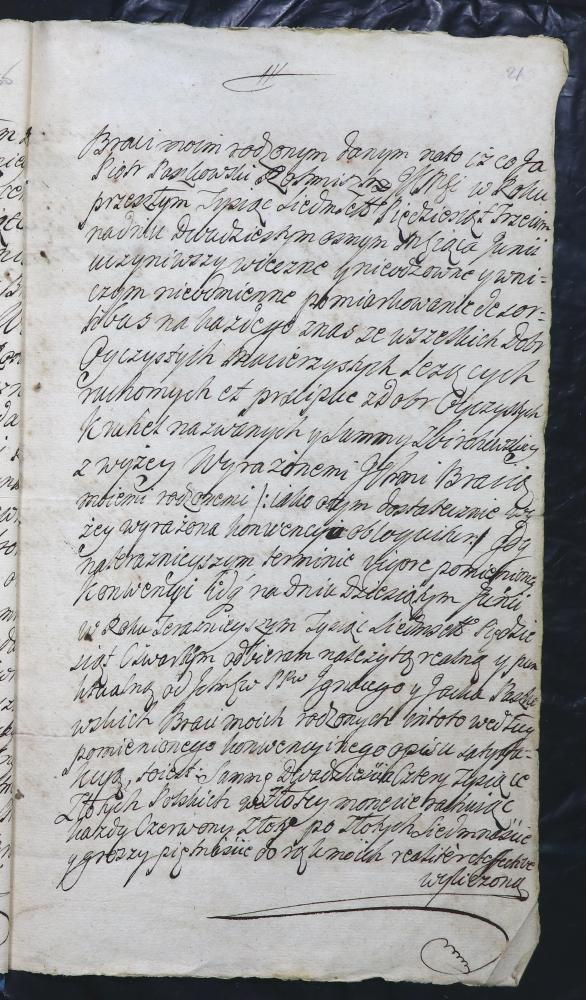 21
Braci moim rodzonym danym na to iż co Ja
Piotr Paszkowski z JchMściami w Roku
przeszłym Tysiąc Siedmset Pięćdziesiąt Trzecim
na dniu dwudziestym osmym Msca Junii
uczyniwszy wieczne y nieodzowne y wni-
czym nieodmienne pomiarkowanie de sor-
tibus na każdego znas ze wszelkich Dobr
Oyczystych Macierzystych Leżących
ruchomych et praecipue z dobr Oyczystych
nazwanych y Summy
z wyżey Wyrażonemi Jchmi Bracią
moiemi rodzonemi /: iako o tym dostatecznie wy-
żey wyrażona konwencya obloquitur / Gdy
na teraznieyszym terminie vigore pomienioney
Konwencyi na dniu dziesiątym Junii
w Roku Teraznieyszym Tysiąc Siedmset Pięćdzie
siąt Czwartym odbieram należytą realną y pun
ktualną od Jchmciow PPw Ignacego y Jacka Paszko
wskich Braci moich rodzonych in toto według
pomienionego konwencyinego opisu satysfa-
kcyą, to iest Summę Dwadzieścia Cztery Tysiące
Złotych Polskich we Złotey monecie rachuiąc
każdy Czerwony Złoty po Złotych Siedmnaście
y groszy piętnaście do rąk moich realiter et effective
wyliczoną